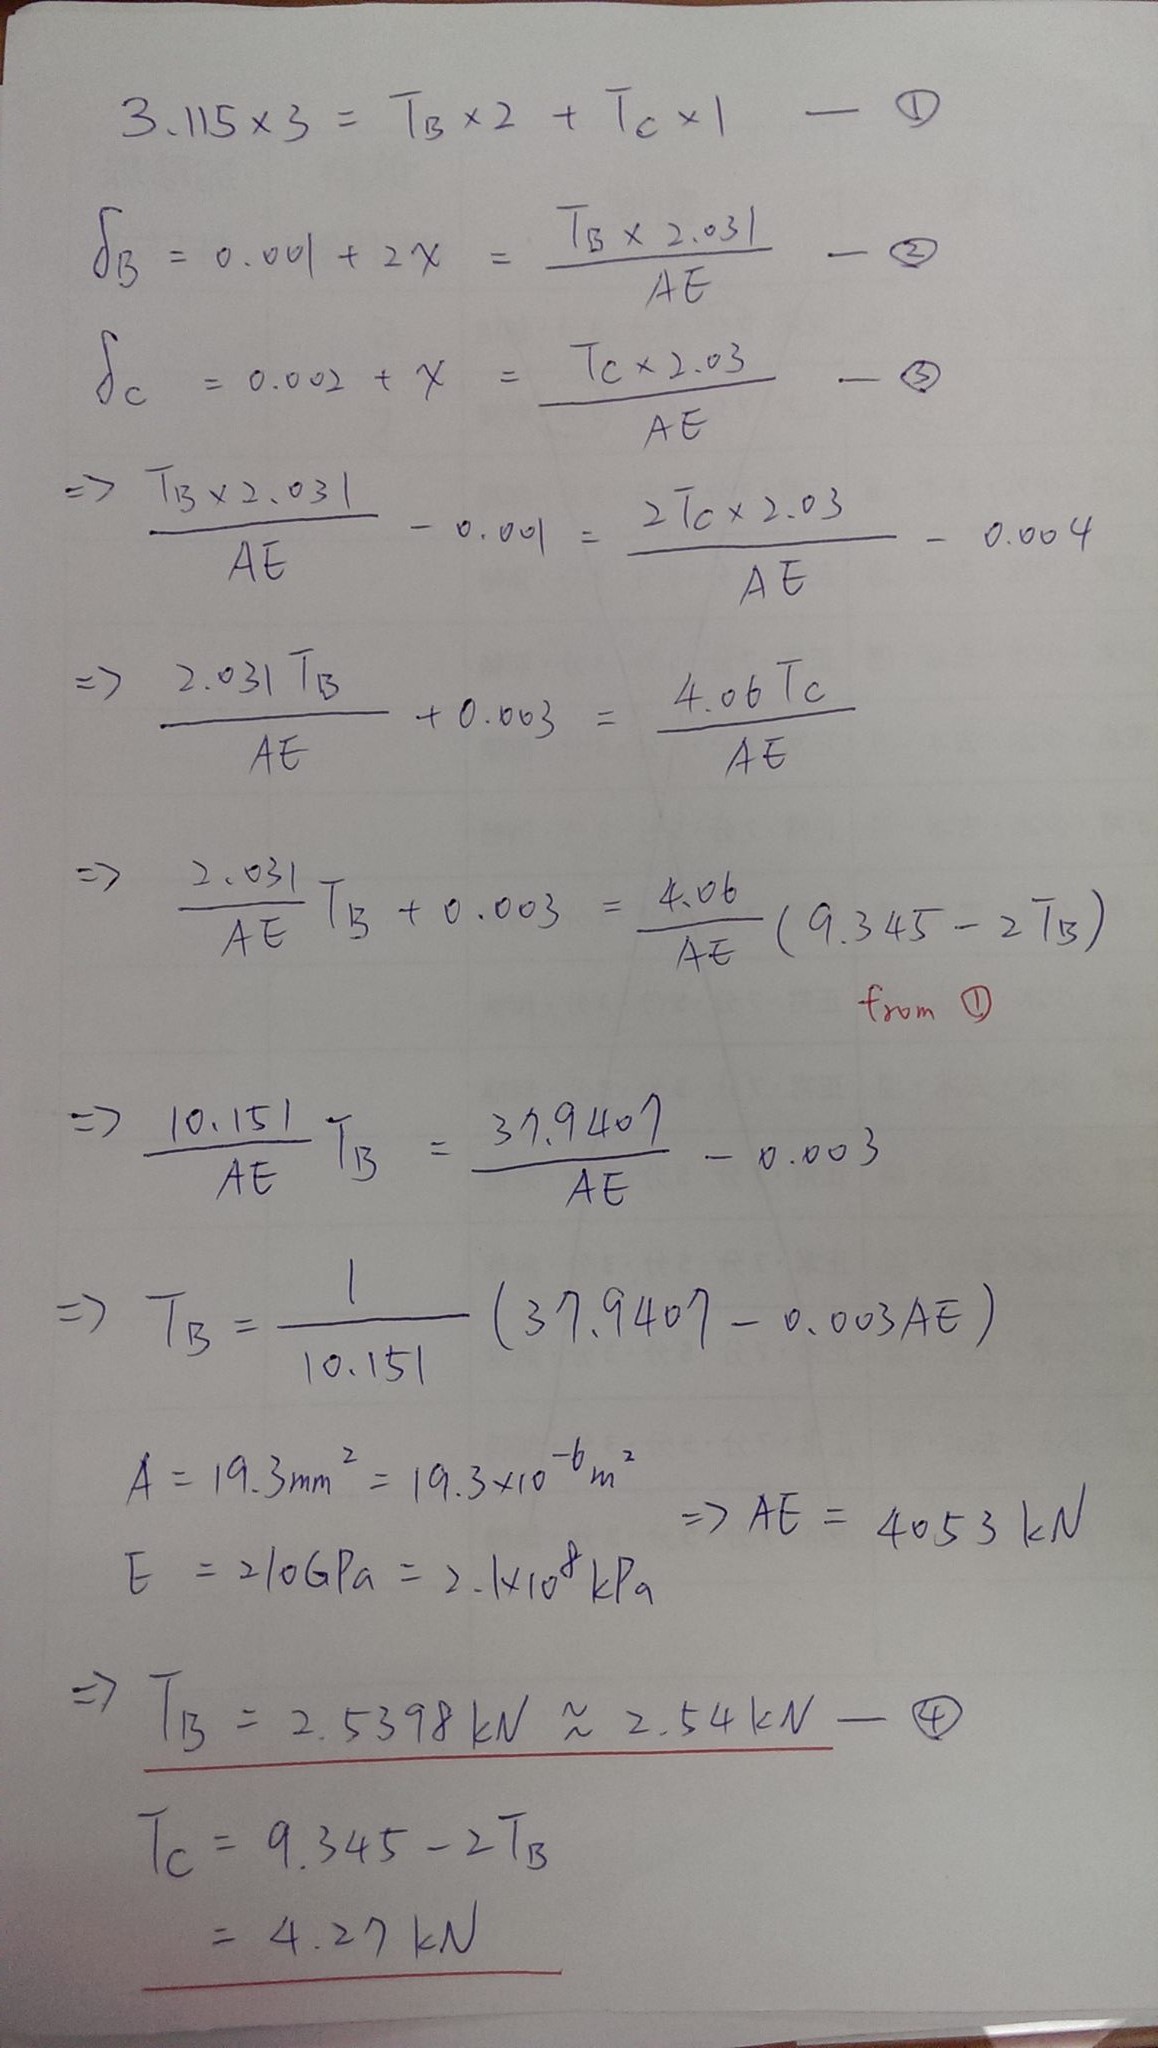 3.115×3 = T_B ×2 + T_C ×1 — ①
δ_B = 0.001 + 2x = (T_B × 2.031)/(AE) — ②
δ_C = 0.002 + x = (T_C × 2.03)/(AE) — ③
=> (T_B × 2.031)/(AE) - 0.001 = (2T_C × 2.03)/(AE) - 0.004
=> (2.031 T_B)/(AE) + 0.003 = (4.06 T_C)/(AE)
=> (2.031)/(AE) T_B + 0.003 = (4.06)/(AE) (9.345 - 2T_B)
from ①
=> (10.151)/(AE) T_B = (37.9407)/(AE) - 0.003
=> T_B = (1)/(10.151) (37.9407 - 0.003AE)
A = 19.3mm² = 19.3×10⁻⁶m²
=> AE = 4053 kN
E = 210GPa = 2.1×10⁸kPa
=> T_B = 2.5398kN ≈ 2.54kN — ④
T_C = 9.345 - 2T_B
= 4.27 kN